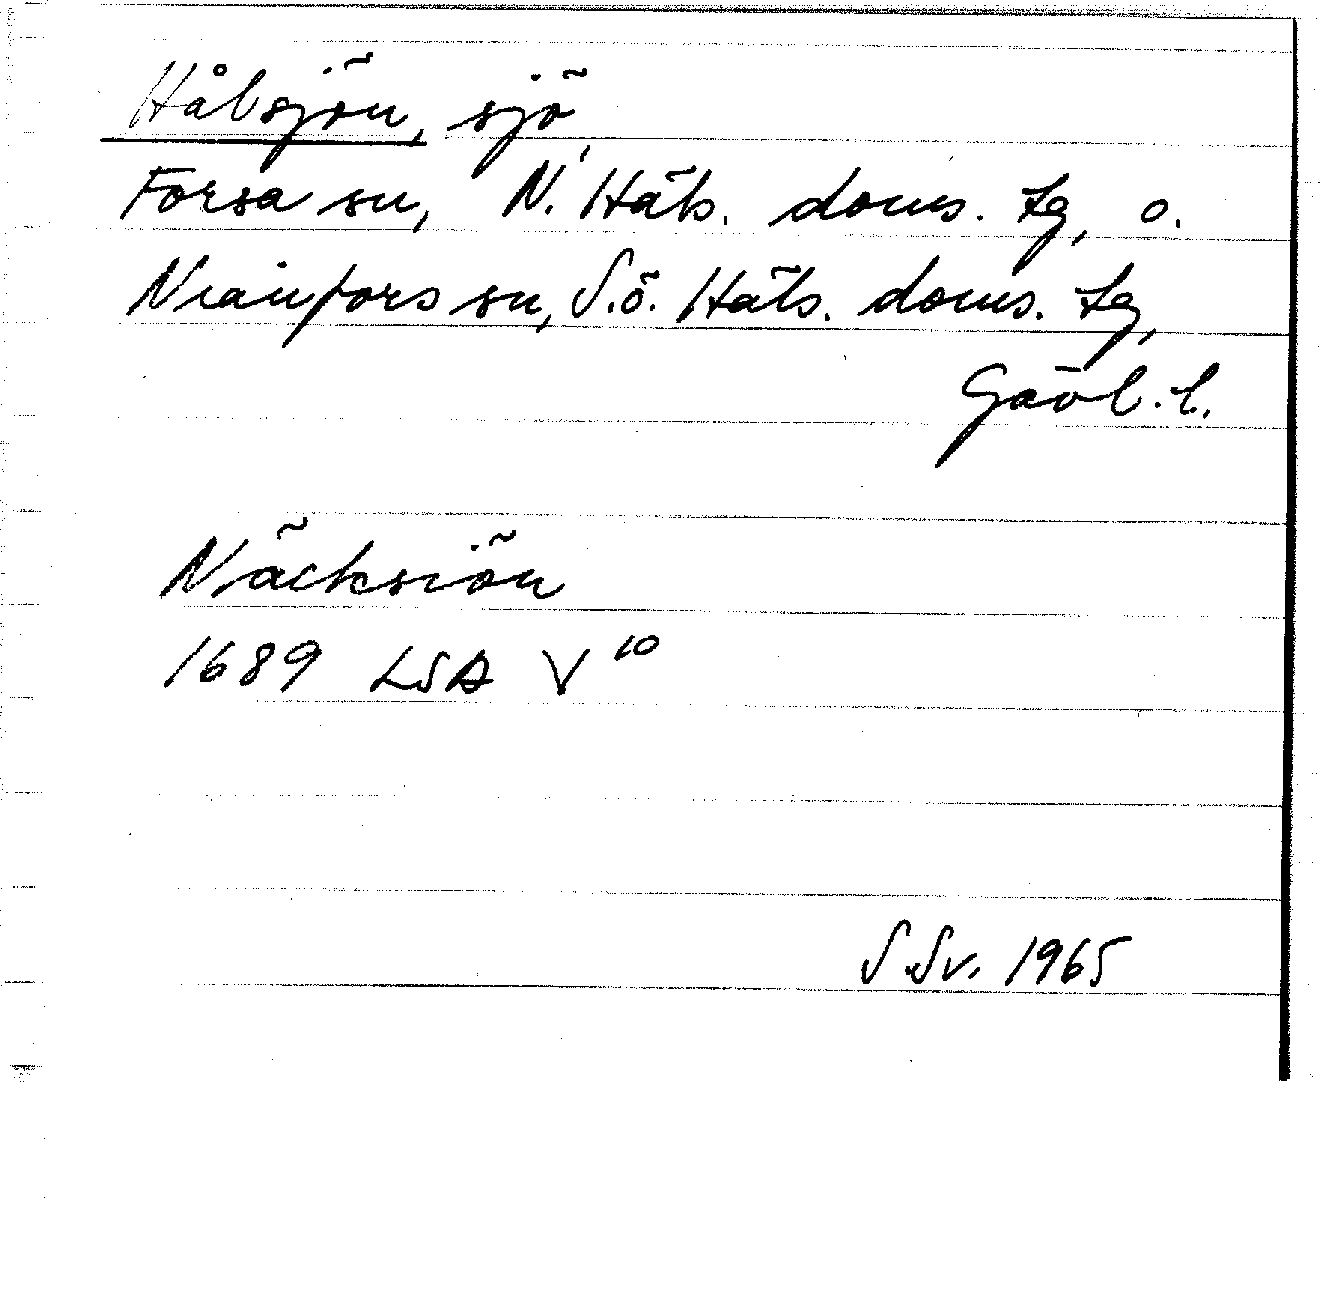 Hålsjön, sjö,
Forsa sn, N. Häls. doms. tg, o.
Nianfors sn, S.ö. Häls. doms. tg,
Gävl. l.
Näcksiön
1689 LSA V 10
S.Sv. 1965